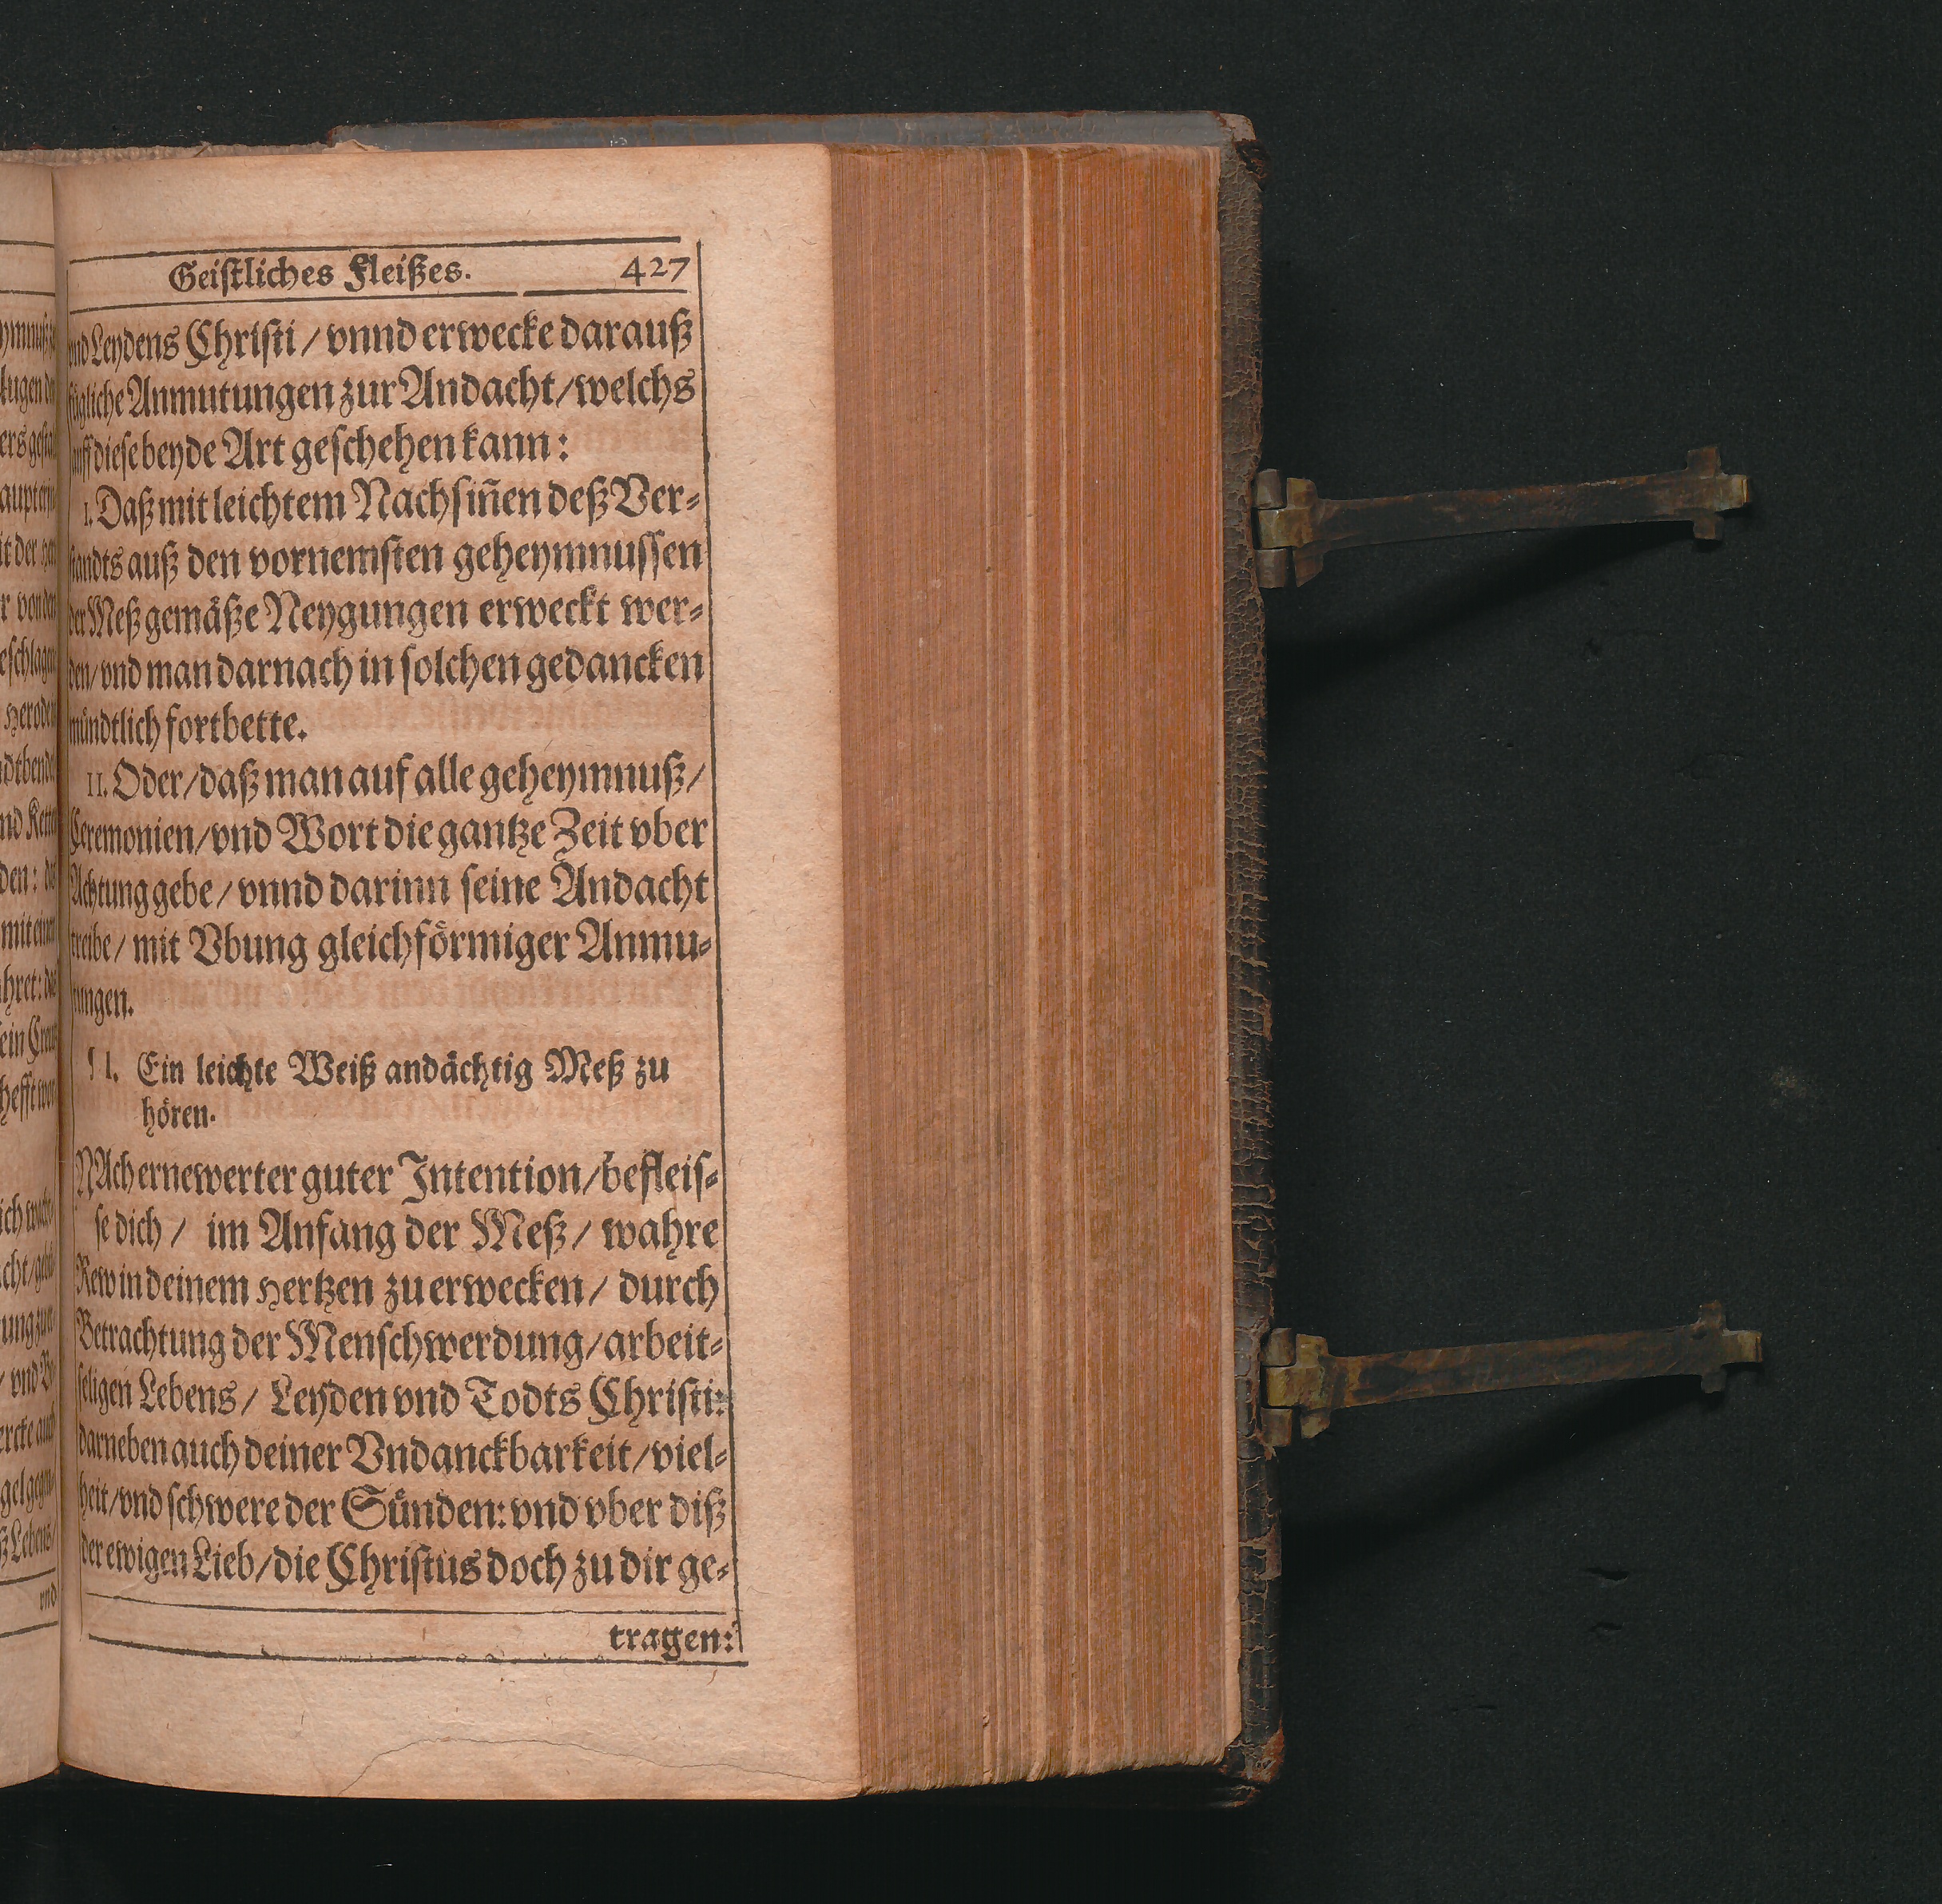 Geistliches Fleißes. 427
vnd Leydens Christi / vnnd erwecke darauß
fügliche Anmutungen zur Andacht / welchs
auff diese beyde Art geschehen kann:
I. Daß mit leichtem Nachsiñen deß Ver-
standts auß den vornemsten geheymnussen
der Meß gemäße Neygungen erweckt wer-
den / vnd man darnach in solchen gedancken
mündtlich fortbette.
II. Oder / daß man auf alle geheymnuß /
Ceremonien / vnd Wort die gantze Zeit vber
Achtung gebe / vnnd darinn seine Andacht
treibe / mit Vbung gleichförmiger Anmu-
tungen.
Ein leichte Weiß andächtig Meß zu
hören.
NAch ernewerter guter Intention / befleis-
se dich / im Anfang der Meß / wahre
Rew in deinem Hertzen zu erwecken / durch
Betrachtung der Menschwerdung / arbeit-
seligen Lebens / Leyden vnd Todts Christi:
darneben auch deiner Vndanckbarkeit / viel-
heit / vnd schwere der Sünden: vnd vber diß
der ewigen Lieb / die Christus doch zu dir ge-
tragen: